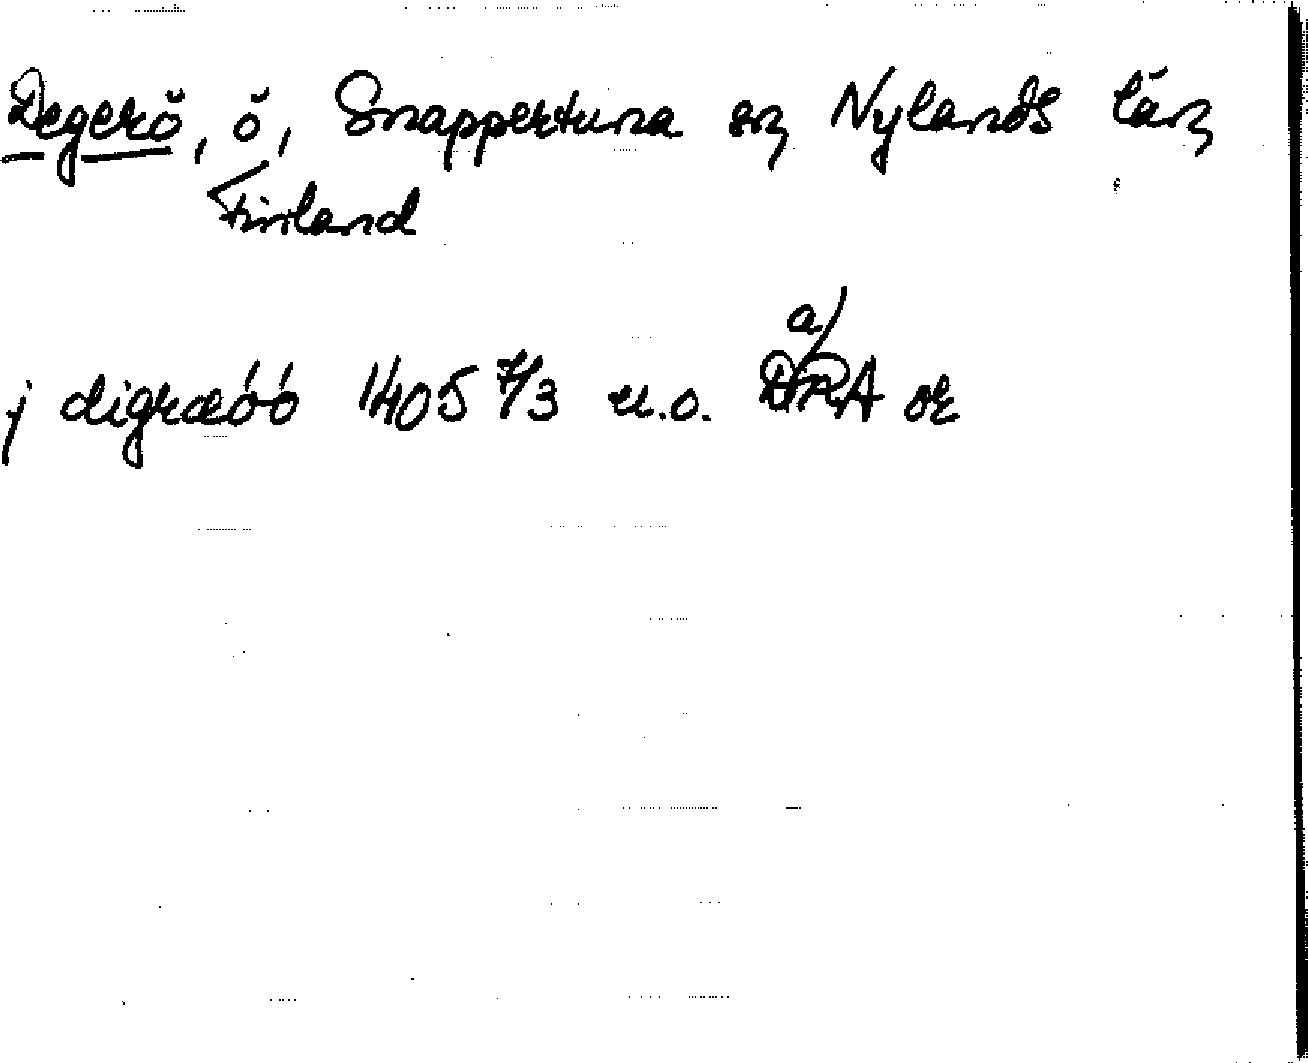 Degerö, ö, Snappertuna sn, Nylands län,
Finland
a)
j digræóó 1405 7/3 u.o. DRA or